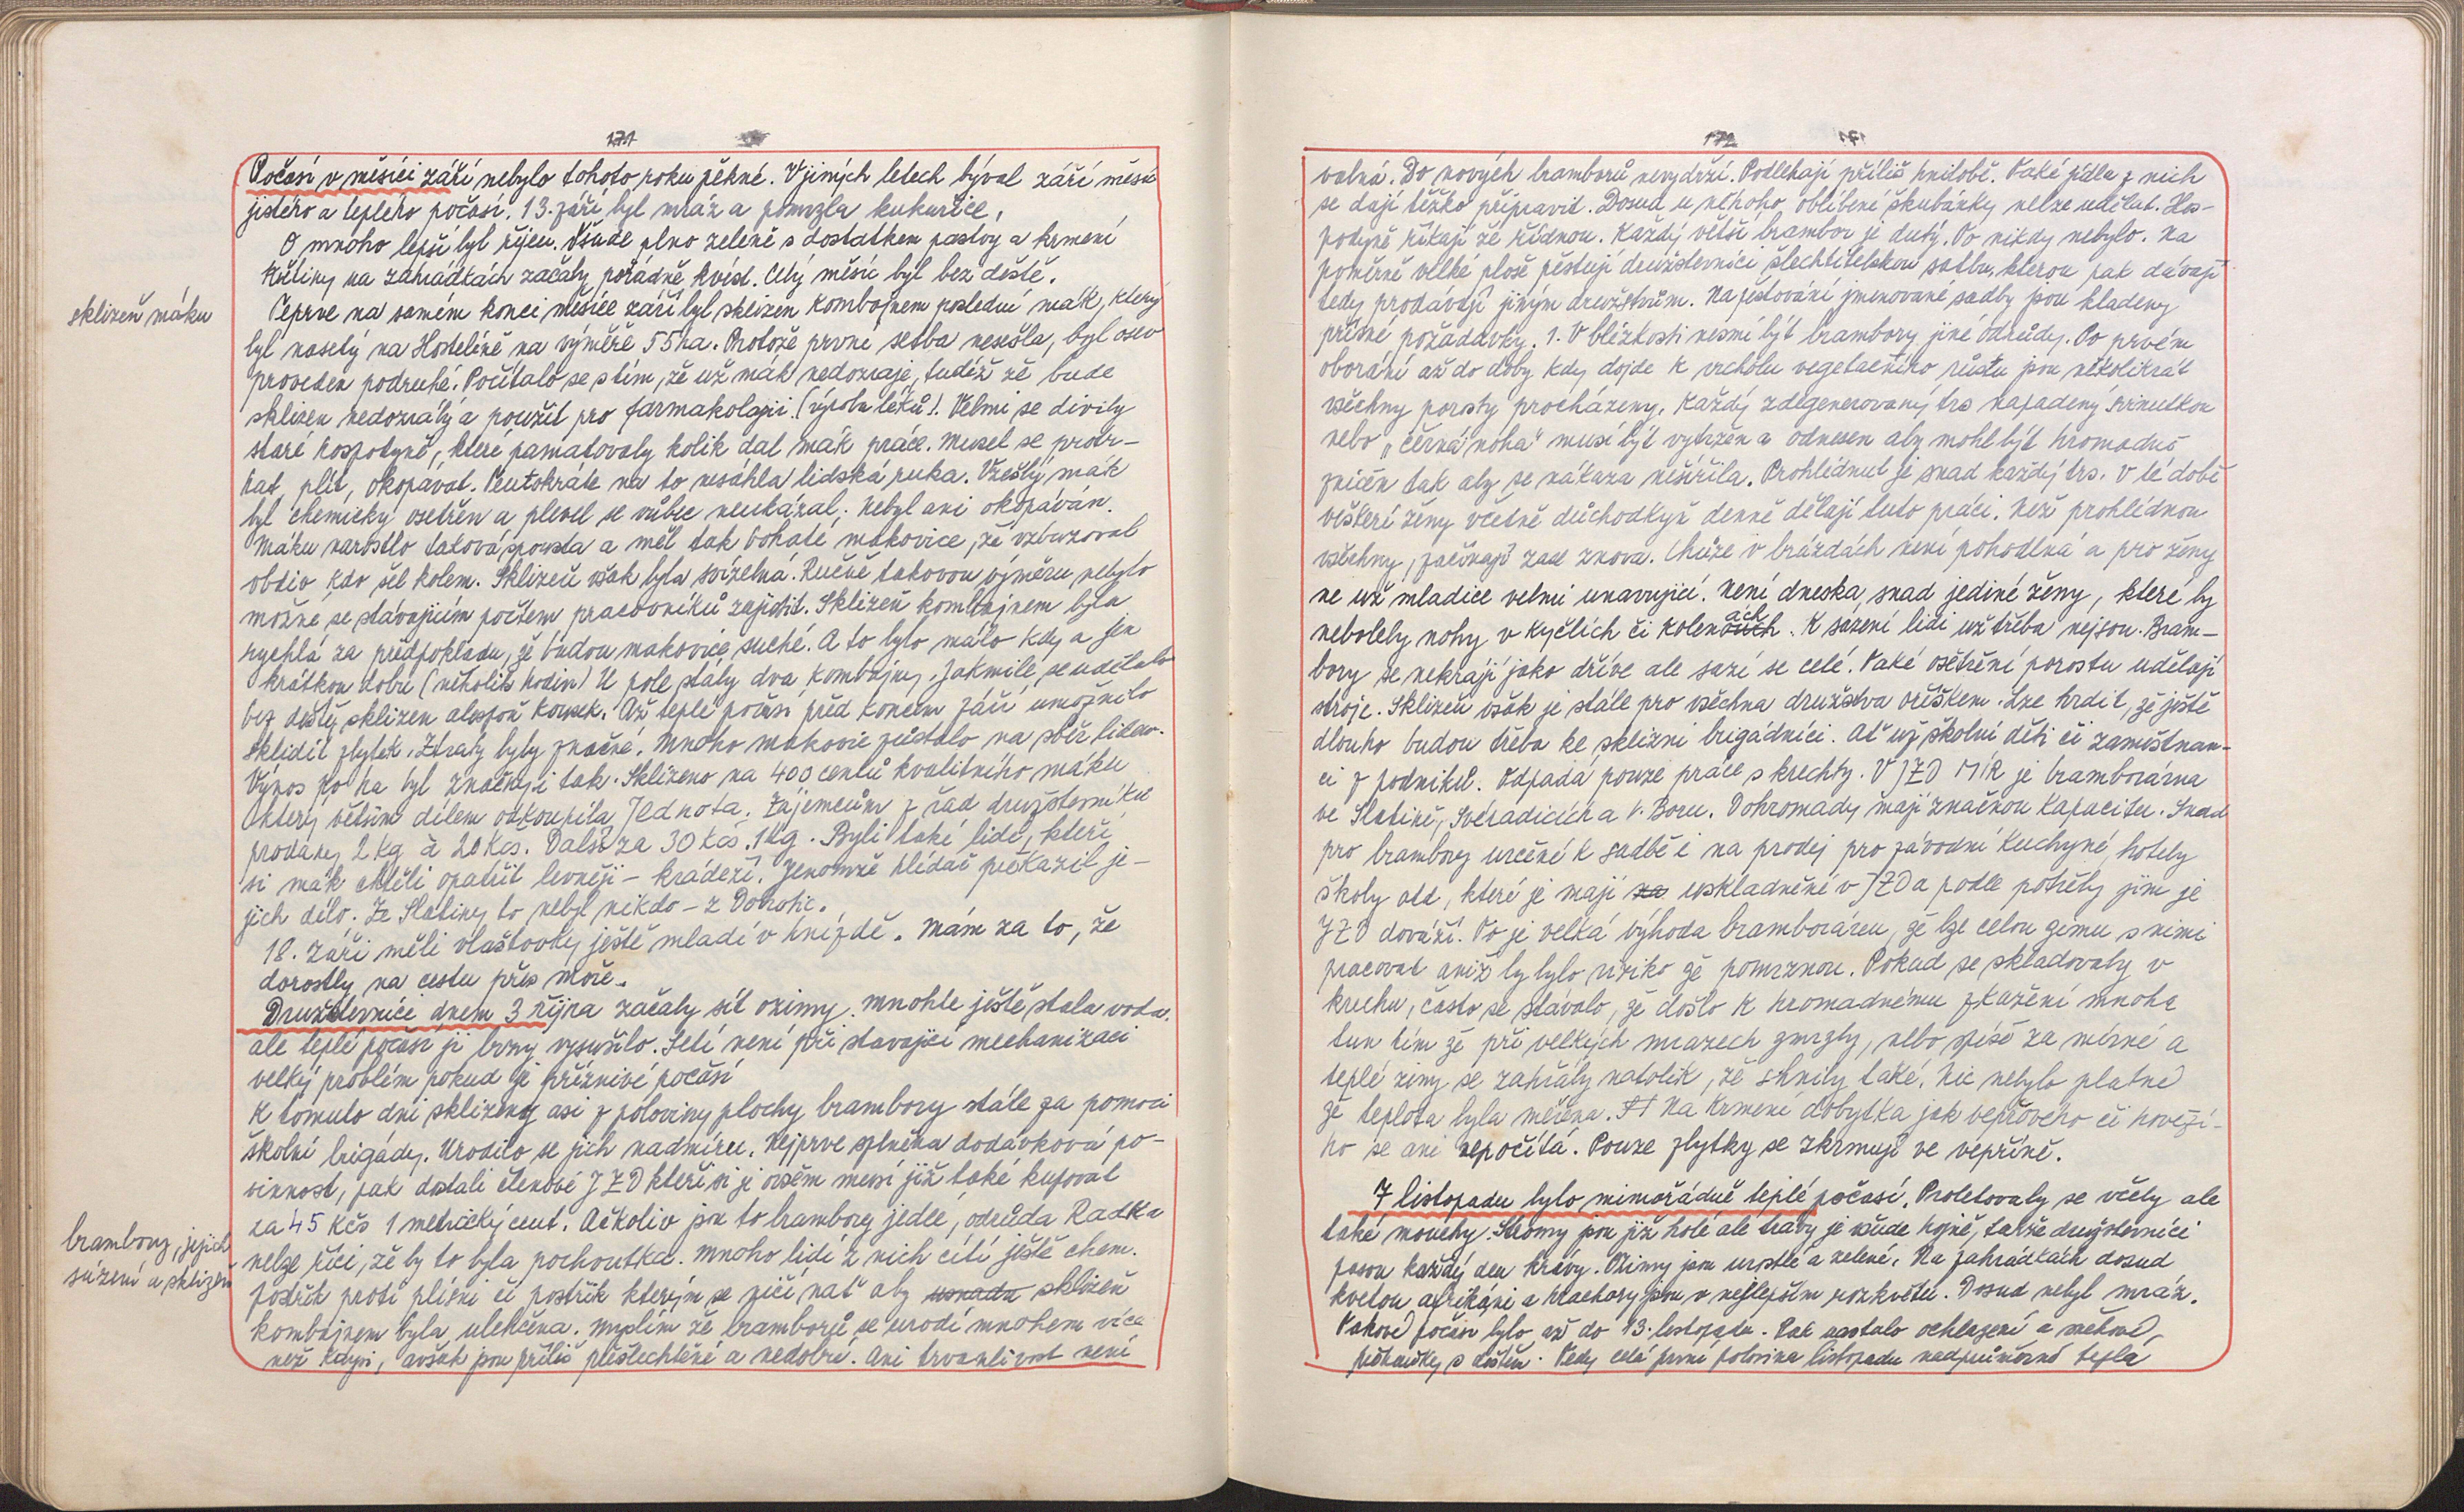 171
Počasí v měsíci září nebylo tohoto roku pěkné. V jiných letech býval září měsíc
jistého a teplého počasí. 13. září byl mráz a pomrzla kukuřice.
O mnoho lepší byl říjen. Všude plno zeleně s dostatkem pastvy a krmení
Květiny na zahrádkách začaly pořádně kvést. Celý měsíc byl bez deště.
sklizeň máku
Teprve na samém konci měsíce září byl sklizen kombajnem poslední mák, který
byl nasetý na Hostelině na výměře 55 ha. Protože první setba nesešla, byl osev
proveden podruhé. Počítalo se s tím, že už mák nedozraje, tudíž že bude
sklizen nedozrálý a použit pro farmakologii. (výroba léků). Velmi se divily
staré hospodyně, které pamatovaly kolik dal mák práce. Musel se protr-
hat, plít, okopávat. Tentokráte na to nesáhla lidská ruka. Vzešlý mák
byl chemicky osetřen a plevel se vůbec neukázal. Nebyl ani okopáván.
Máku narostlo taková spousta a měl tak bohaté makovice, že vzbuzoval
obdiv kdo šel kolem. Sklizeň však byla svízelná. Ručně takovou výměru nebylo
možné se stávajícím počtem pracovníků zajistit. Sklizeň kombajnem byla
rychlá za předpokladu, že budou makovice suché. A to bylo málo kdy a jen
krátkou dobu (několik hodin) U pole stály dva kombajny. Jakmile se udělalo
bez deště, sklizen alespoň kousek. Až teplé počasí před koncem září umožnilo
sklidit zbytek. Ztráty byly značné. Mnoho makovic zůstalo na sběr lidem.
Výnos po ha byl značný i tak. Sklizeno na 400 centů kvalitního máku
který větším dílem odkoupila Jednota. Zájemcům z řad družstevníků
prodány 2 kg à 20 Kčs. Další za 30 Kčs. 1 kg. Byli také lidé, kteří
si mák chtěli opatřit levněji - krádeží. Jenomže hlídač překazil je-
jich dílo. Ze Slatiny to nebyl nikdo - z Dobrotic.
18. Září měli vlaštovky ještě mladé v hnízdě. Mám za to, že
dorostly na cestu přes moře.
Družstevníci dnem 3 října začaly sít ozimy. Mnohde ještě stála voda.
ale teplé počasí ji brzy vysušilo. Setí není při stavající mechanizaci
velký problém pokud je příznivé počasí
K tomuto dni sklizeny asi z poloviny plochy brambory stále za pomoci
školní brigády. Urodilo se jich nadmíru. Nejprve splněna dodávková po-
vinnost, pak dostali členové JZD kteří si je ovšem musí již také kupovat
za 45 Kčs 1 metrický cent. Ačkoliv jsou to brambory jedlé, odrůda Radka
brambory, jejich
sázení a sklizeň
nelze říci, že by to byla pochoutka. Mnoho lidí z nich cítí ještě chem.
postřik proti plísni či postřik kterým se ničí nať aby usnadn sklizeň
kombajnem byla ulehčena. Myslím že bramborů se urodí mnohem více
než kdysi, avšak jsou příliš přešlechtěné a nedobré. Ani trvanlivost není
172
valná. Do nových bramborů nevydrží. Podléhají příliš hnilobě. Také jídla z nich
se dají těžko připravit. Dosud u někoho oblíbené škubánky nelze udělat. Hos-
podyně říkají že řídnou. Každý větší brambor je dutý. To nikdy nebylo. Na
poměrně velké ploše pěstují družstevníci šlechtitelskou sadbu, kterou pak dávají
tedy prodávají jiným družstvům. Na pěstování jmenované sadby jsou kladeny
přísné požadavky. 1. V blízkosti nesmí být brambory jiné odrůdy. Po prvém
oborání až do doby kdy dojde k vrcholu vegetačního růstu jsou několikrát
všechny porosty procházeny. Každý zdegenerovaný trs napadený svinutkou
nebo "černá noha" musí být vytržen a odnesen aby mohl být hromadně
zničen tak aby se nákaza nešířila. Prohlédnut je snad každý trs. V té době
veškeré ženy včetně důchodkyň denně dělají tuto práci. Než prohlédnou
všechny, začínají zase znova. Chůze v brázdách není pohodlná a pro ženy
ne už mladice velmi unavující. Není dneska snad jediné ženy, které by
nebolely nohy v kyčlích či kolenách. K sázení lidi už třeba nejsou. Bram-
bory se nekrájí jako dříve ale sází se celé. Také ošetření porostu udělají
stroje. Sklizeň však je stále pro všechna družstva oříškem. Lze tvrdit, že ještě
dlouho budou třeba ke sklizni brigádníci. Ať už školní děti či zaměstnan-
ci z podniků. Odpadá pouze práce s krechty. V JZD MÍR je bramborárna
ve Slatině, Svéradicích a V. Boru. Dohromady mají značnou kapacitu. Snad
pro brambory určené k sadbě i na prodej pro závodní kuchyně, hotely
školy atd, které je mají za uskladněné v JZD a podle potřeby jim je
JZD dováží. To je velká výhoda bramboráren, že lze celou zimu s nimi
pracovat aniž by bylo riziko že pomrznou. Pokud se skladovaly v
krechu, často se stávalo, že došlo k hromadnému zkažení mnoha
tun tím že při velkých mrazech zmrzly, nebo spíše za mírné a
teplé zimy se zahřály natolik, že shnily také. Nic nebylo platné
že teplota byla měřena. Na krmení dobytka jak vepřového či hověží-
ho se ani nepočítá. Pouze zbytky se zkrmují ve vepříně.
7 listopadu bylo mimořádně teplé počasí. Proletovaly se včely ale
také mouchy. Stromy jsou již holé ale trávy je všude hojně, takže družstevníci
pasou každý den krávy. Ozimy jsou vzrostlé a zelené. Na zahrádkách dosud
kvetou afrikáni a hlachory jsou v nejlepším rozkvětu. Dosud nebyl mráz.
Takové počasí bylo až do 13. listopadu. Pak nastalo ochlazení a sněhové
přeháňky s deštěm. Tedy celá první polovina listopadu nadprůměrně teplá